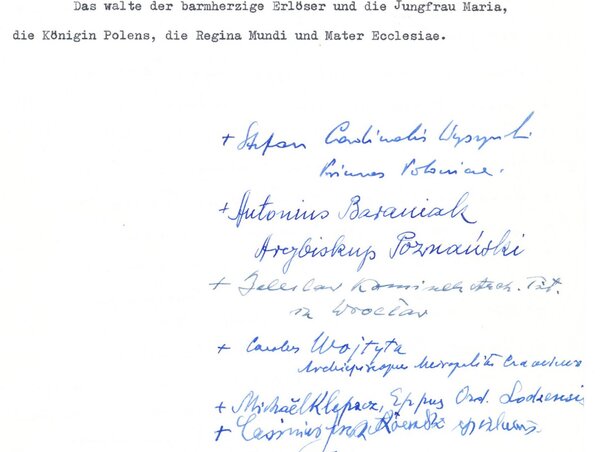 Das walte der barmherzige Erlöser und die Jungfrau Maria,
die Königin Polens, die Regina Mundi und Mater Ecclesiae.
+ Stefan Cardinalis Wyszyński
Primas Poloniae.
+ Antonius Baraniak
Arcybiskup Poznański
+ Boleslav Kominek Arch. Tit.
in Wrocław
+ Carolus Wojtyła
Archiepiscopus Metropolita Cracoviensis
+ Michaël Klepacz, Eppus Ord. Lodzensis
+ Casimirus